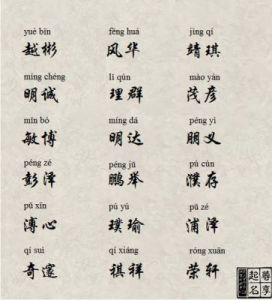 yuè bīn fēng huá jìng qí
越彬 风华 靖琪
míng chéng lǐ qún mào yàn
明诚 理群 茂彦
mǐn bó míng dá péng yì
敏博 明达 朋义
péng zé péng jǔ pú cún
彭泽 鹏举 濮存
pǔ xīn pú yú pǔ zé
溥心 璞瑜 浦泽
qí suì qí xiáng róng xuān
奇邃 祺祥 荣轩
尊享起名